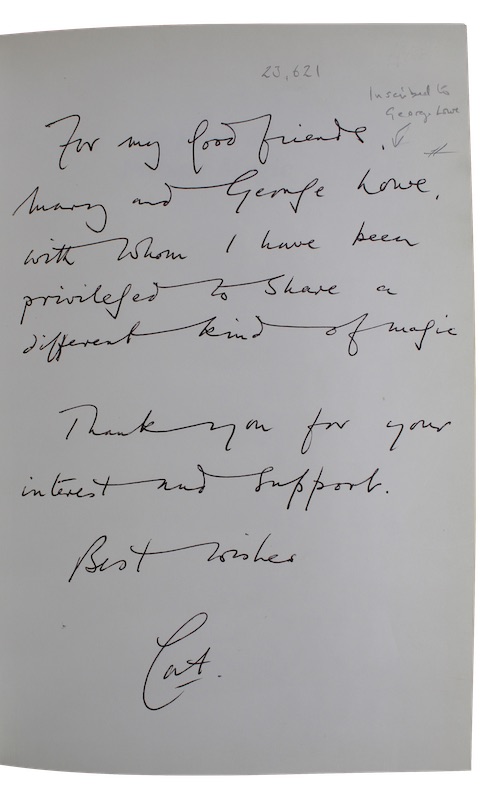 23,621
Inscribed to
George Lowe
For my good friends,
Mary and George Lowe,
with whom I have been
privileged to share a
different kind of magic
Thank you for your
interest and support.
Best wishes